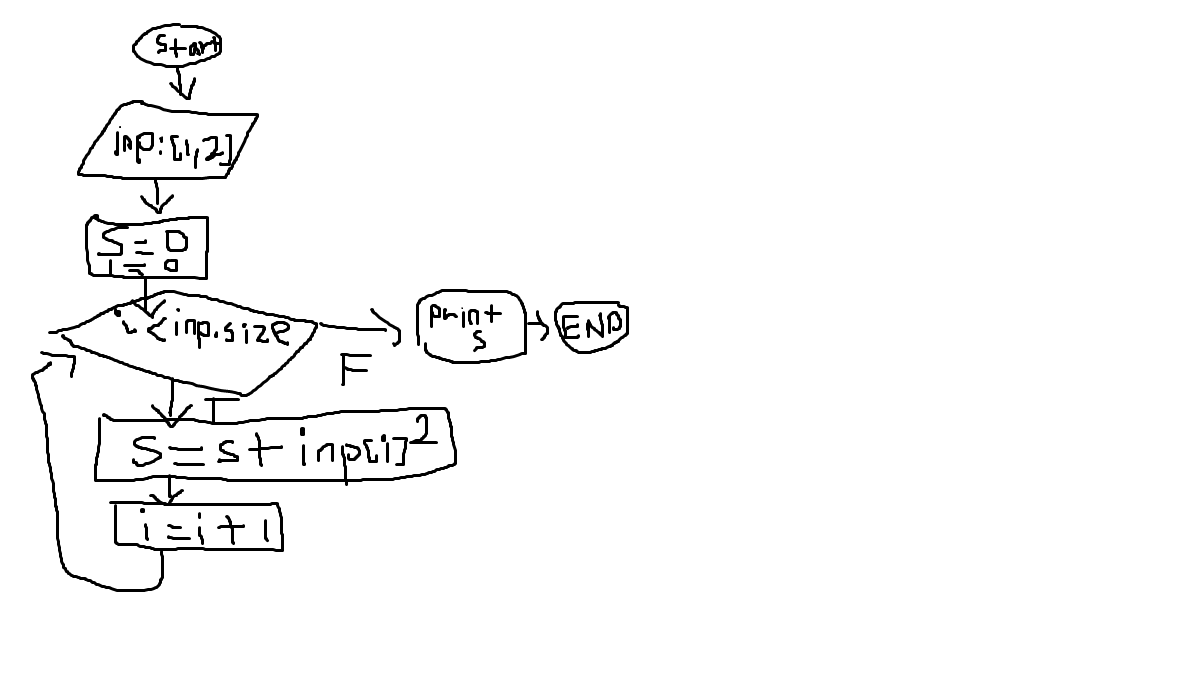 Start
inp:[1,2]
S=0
i=0
i<inp.size
print
s
END
F
T
S=s+inp[i]²
i=i+1